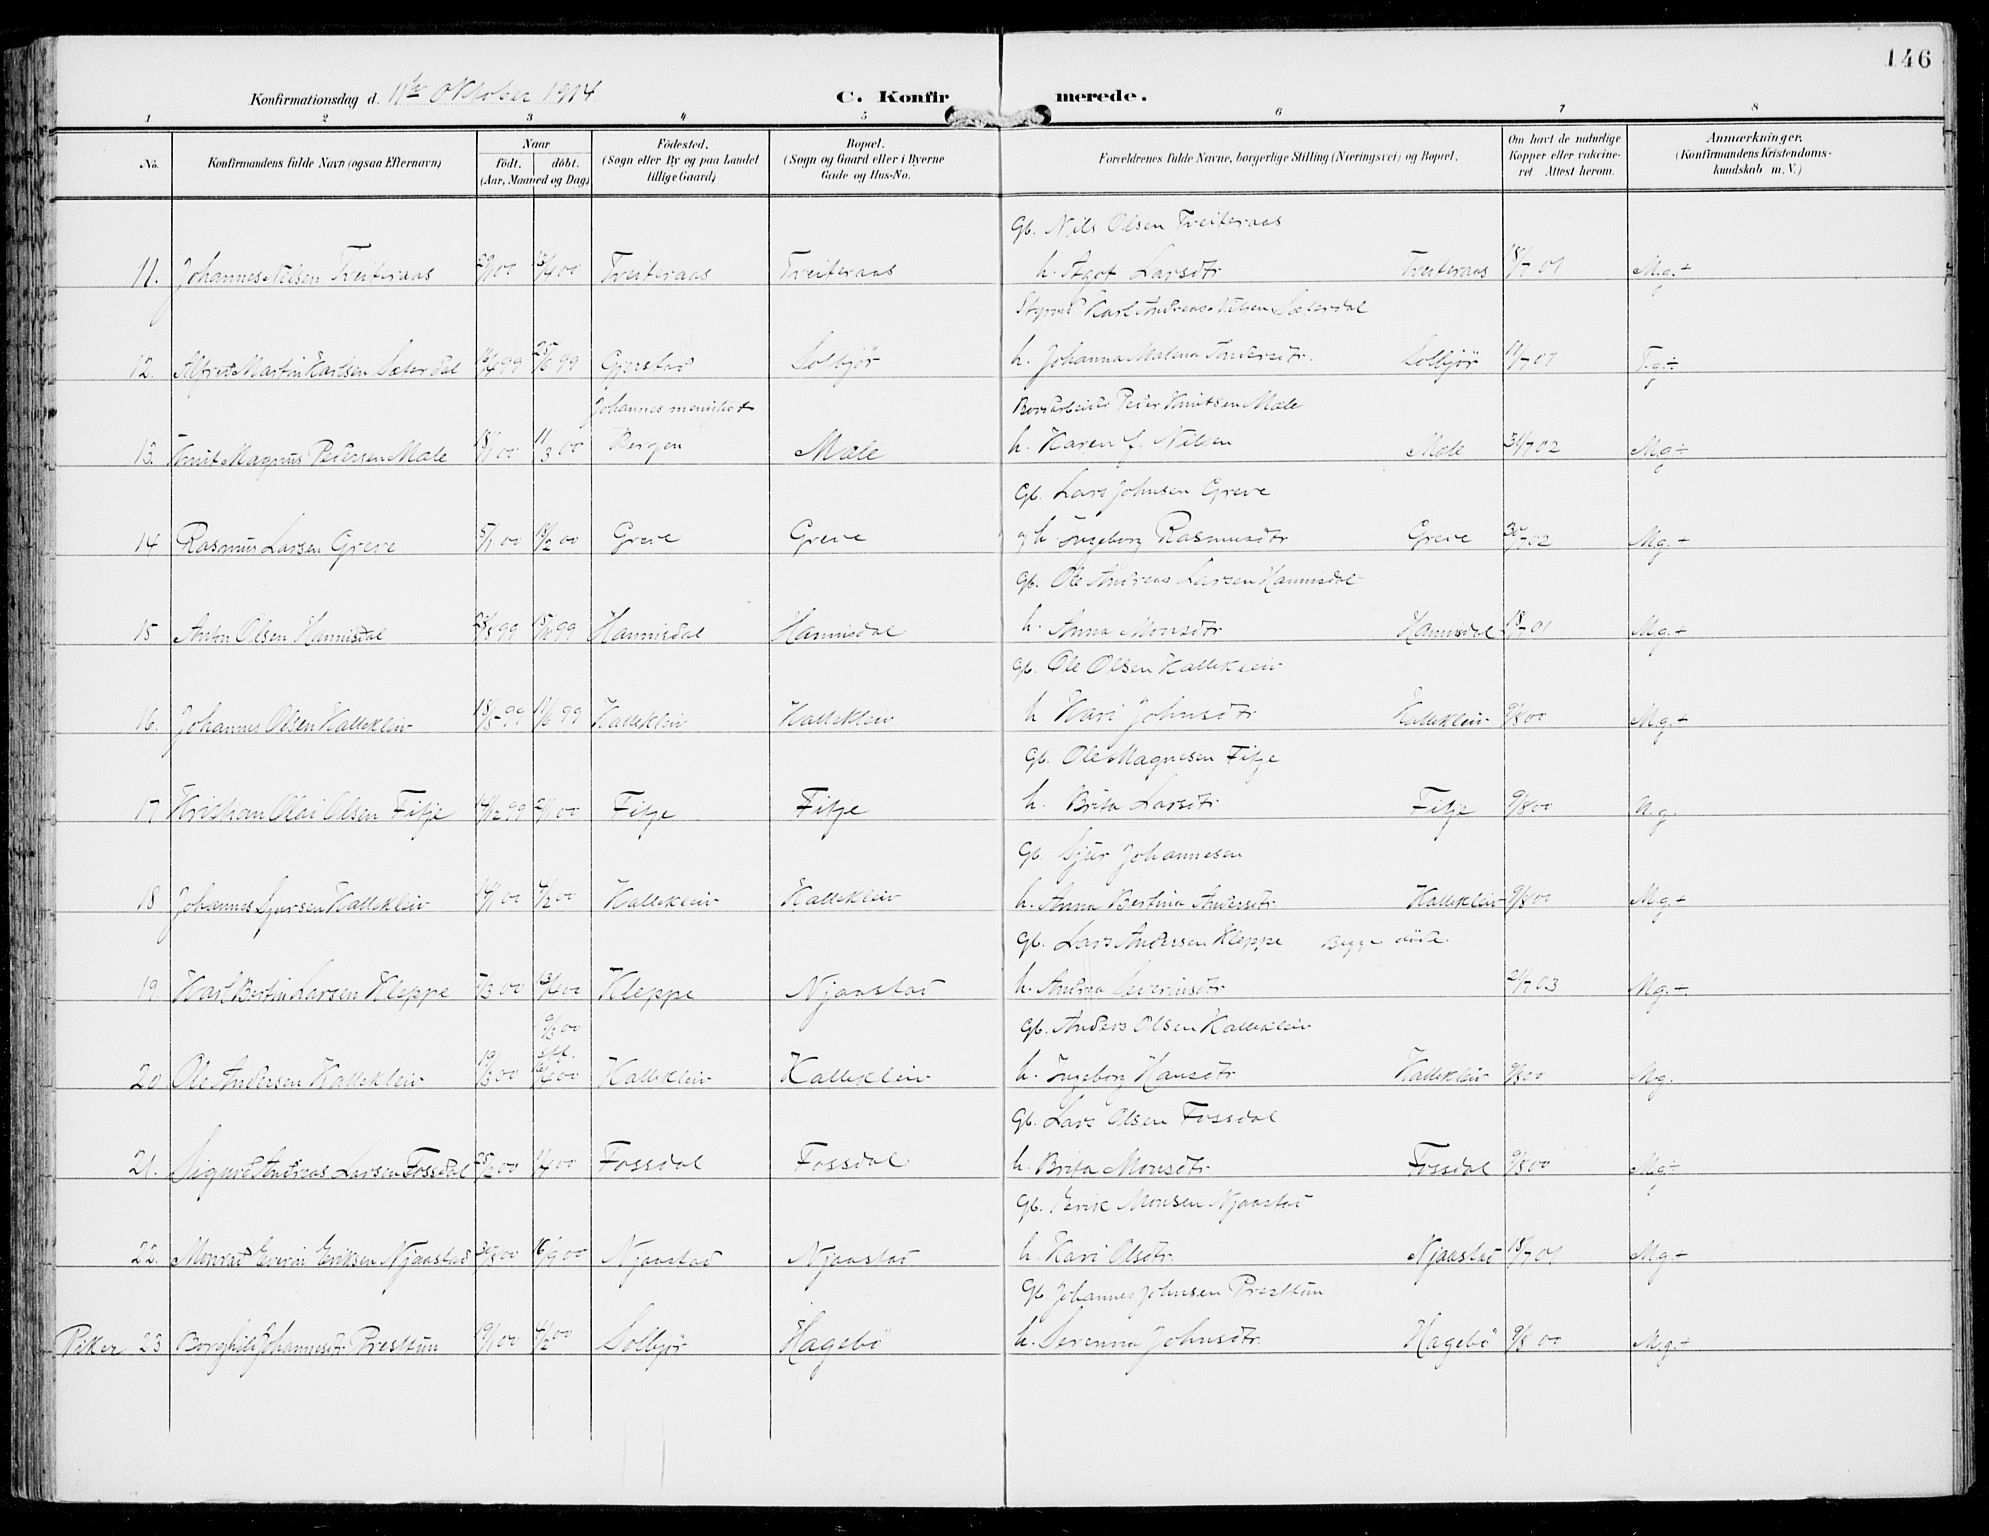 146
Konfirmationsdag d. 11te Oktober 1914 C. Konfirmerede.
1 2 3 4 5 6 7 8
No. Konfirmandens fulde Navn (ogsaa Efternavn) Naar født. døbt. (Aar, Maaned og Dag) Fødested. (Sogn eller By og paa Landet tillige Gaard) Bopæl. (Sogn og Gaard eller i Byerne Gade og Hus-No. Forældrenes fulde Navne, borgerlige Stilling (Næringsvei) og Bopæl. Om havt de naturlige Kopper eller vakcineret Attest herom. Anmærkninger. (Konfirmandens Kristendomskundskab m. V.)
Gb. Nils Olsen Treiteraas
11. Johannes Nilsen Treiteraas Treiteraas Treiteraas h. Agot Larsdtr Treiteraas 18/7 01 M.g.+
Karl Andreas Nilsen Sæterdal
12. Alfred Martin Karlsen Sæterdal 16/4 99 25/6 99 Gjerstad Solbjør h. Johanna Malena Andersdtr. Solbjør 11/7 01 T.g.+
Johannes menighet Peder Knutsen Male
13. Knut Magnus Pedersen Male 18/1 00 11/3 00 Bergen Male h. Karen f. Nilsen Male 31/7 02 Mg+
Gb. Lars Johnsen Greve
14 Rasmus Larsen Greve 5/1 00 18/2 00 Greve Greve og h Ingeborg Rasmusdtr Greve 30/7 02 Mg.+
Gb. Ole Andreas Larsen Hannisdal
15 Anton Olsen Hannisdal Hannisdal Hannisdal h. Anna Monsdtr Hannisdal 18/7 01 M.g.+
Gb. Ole Olsen Kallekleiv
16. Johannes Olsen Kallekleiv 18/5 99 11/6 99 Kallekleiv Kallekleiv h Kari Johnsdtr Kallekleiv 9/8 00 M.g.+
Gb. Ole Magnesen Fitje
17 Kristian Olai Olsen Fitje 14/12 99 21/1 00 Fitje Fitje h. Brita Larsdtr Fitje 9/8 00 M.g.
Gb. Sjur Johannesen
18 Johannes Sjursen Kallekleiv 14/1 00 4/2 00 Kallekleiv Kallekleiv h. Anna Bertina Andersdtr. Kallekleiv 9/8 00 M.g.+
Gb. Lars Andersen Kleppe Begge døde
19. Karl Bertin Larsen Kleppe 7/3 00 13/4 00 Kleppe Njaastad h. Andrea Severinsdtr 21/7 03 Mg.-.
9/3 00 Gb. Anders Olsen Kallekleiv
20 Ole Andersen Kallekleiv 19/3 00 Kallekleiv Kallekleiv h. Ingeborg Hansdtr Kallekleiv 9/8 00 M.g.
Gb. Lars Olsen Fossdal
21. Sigurd Andreas Larsen Fossdal 25/2 00 1/4 00 Fossdal Fossdal h. Brita Monsdtr. Fossdal 9/8 00 M.g.+
Gb. Erik Monsen Njaastad
22. Monrad Everin Eriksen Njaastad 16/9 00 Njaastad Njaastad h. Kari Olsdtr. Njaastad 18/7 01 M.g.+
Gb Johannes Johnsen Presttun
Piker 23 Borghild Johannesdtr. Presttun 19/1 00 4/2 00 Solbjør Hagebø h. Serenna Johnsdtr. Hagebø 9/8 00 M.g.+